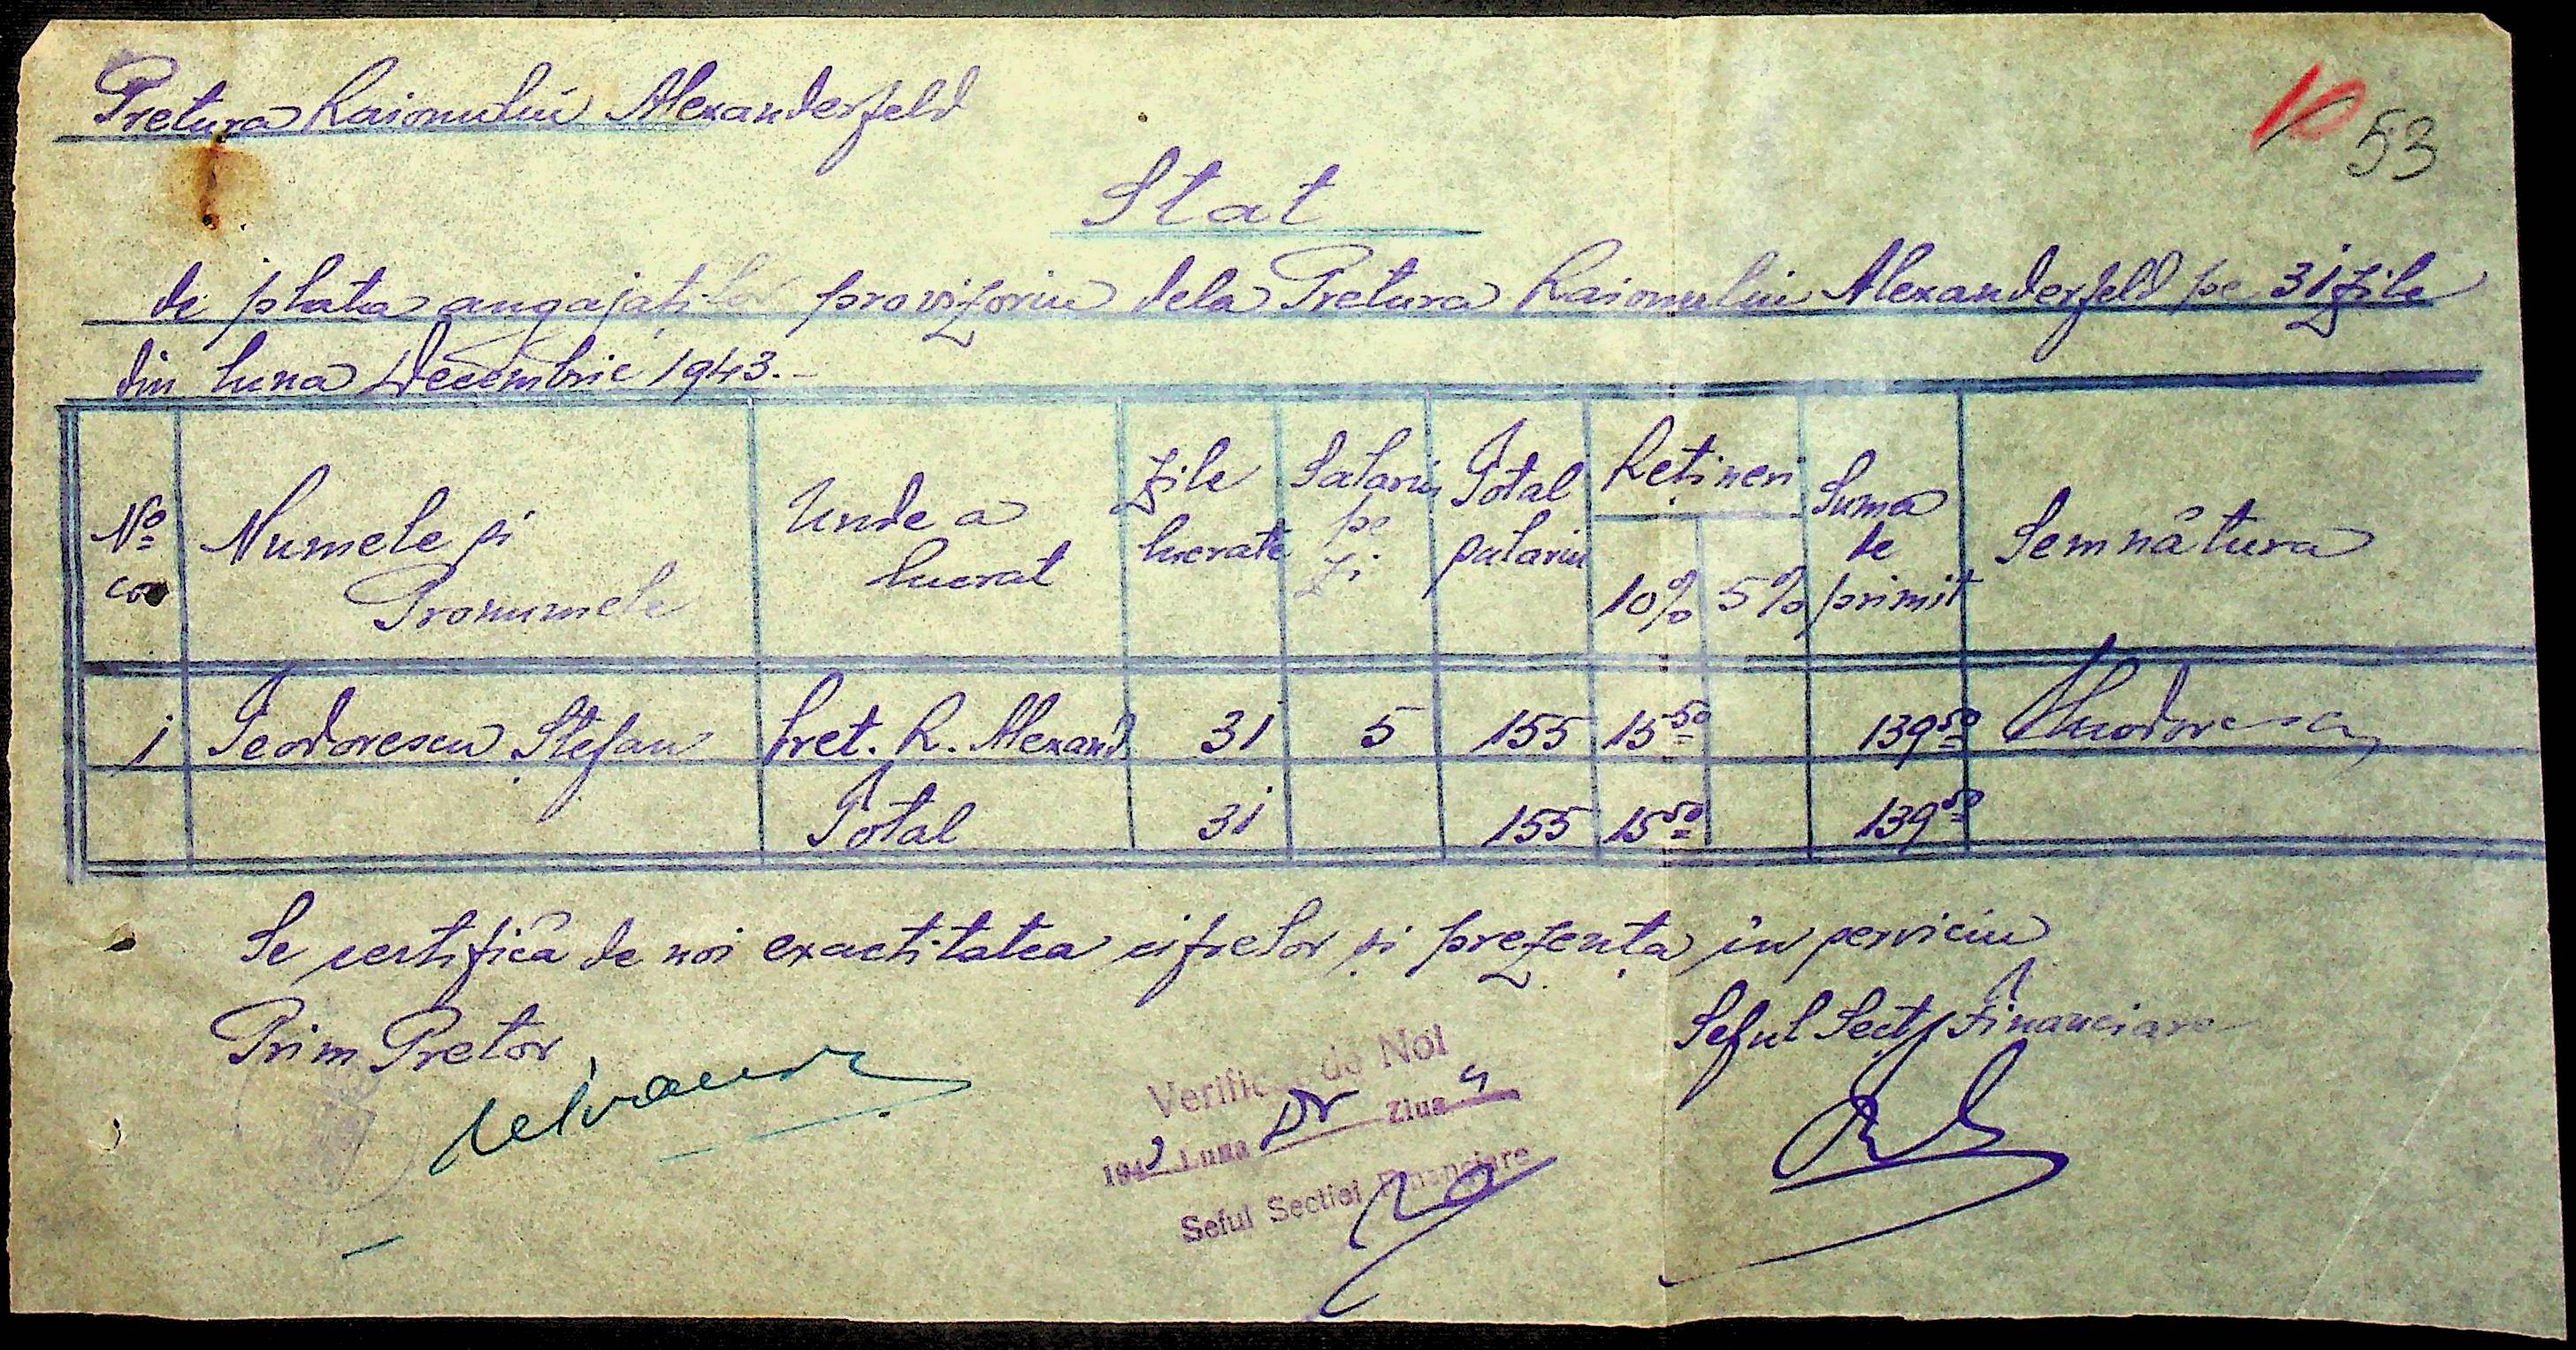 Pretura Raionului Alexanderfeld
10 53
Stat
de plata angajaților provizoriu dela Pretura Raionului Alexanderfeld pe 31 zile
din luna Decembrie 1943.-
No cor
Numele și Pronumele
Unde a lucrat
Zile lucrate
Salariu pe zi
Total salariu
Rețineri
10% 5%
Suma de primit
Semnătura
1 Teodorescu Ștefan Pret. R. Alexand. 31 5 155 15 50 139 50 Theodorescu
Total 31 155 15 50 139 50
Se certifică de noi exactitatea cifrelor și prezența în serviciu
Prim Pretor
Șeful Secț. Financiare
Verific de Noi
194 Luna Ziua
Seful Sectiei Financiare